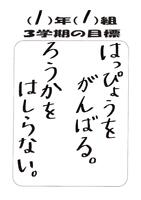 (1)年(1)組
3学期の目標
はっぴょうを
がんばる。
ろうかを
はしらない。